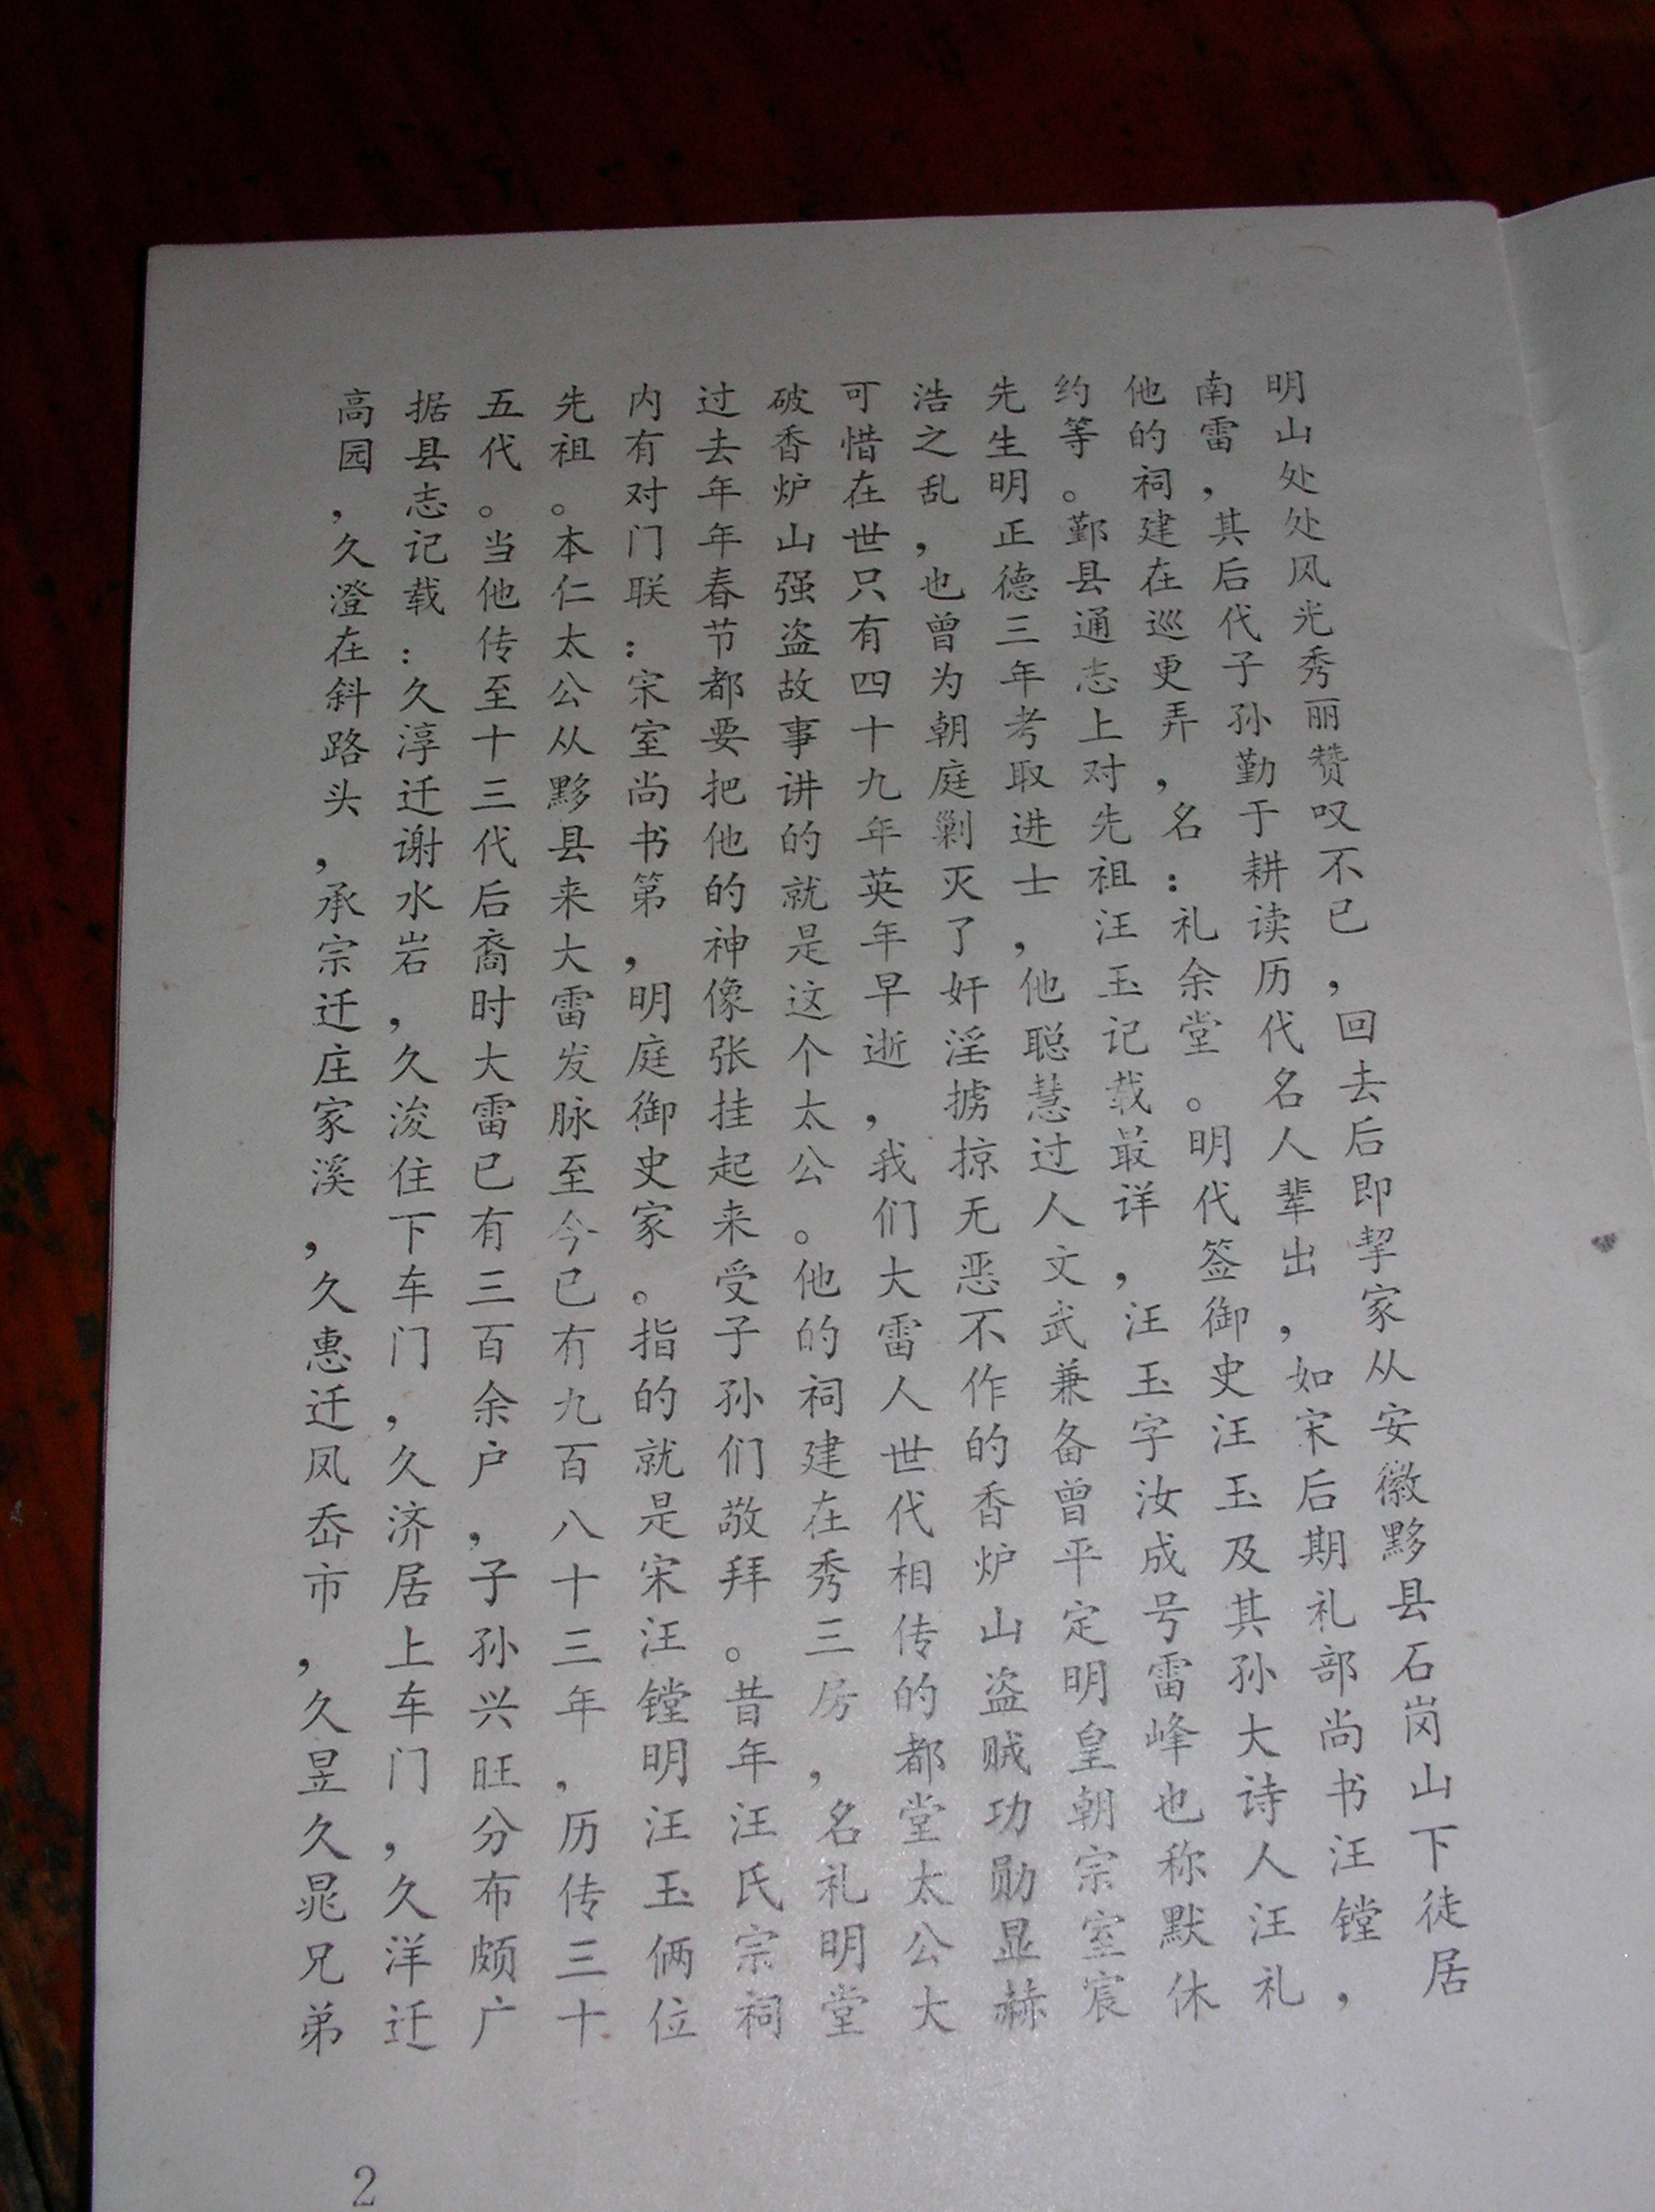 明山处处风光秀丽赞叹不已，回去后即挈家从安徽黟县石岗山下徒居
南雷，其后代子孙勤于耕读历代名人辈出，如宋后期礼部尚书汪镗，
他的祠建在巡更弄，名：礼余堂。明代签御史汪玉及其孙大诗人汪礼
约等。鄞县通志上对先祖汪玉记载最详，汪玉字汝成号雷峰也称默休
先生明正德三年考取进士，他聪慧过人文武兼备曾平定明皇朝宗室宸
浩之乱，也曾为朝庭剿灭了奸淫掳掠无恶不作的香炉山盗贼功勋显赫
可惜在世只有四十九年英年早逝，我们大雷人世代相传的都堂太公大
破香炉山强盗故事讲的就是这个太公。他的祠建在秀三房，名礼明堂
过去年年春节都要把他的神像张挂起来受子孙们敬拜。昔年汪氏宗祠
内有对门联：宋室尚书第，明庭御史家。指的就是宋汪镗明汪玉俩位
先祖。本仁太公从黟县来大雷发脉至今已有九百八十三年，历传三十
五代。当他传至十三代后裔时大雷已有三百余户，子孙兴旺分布颇广
据县志记载：久淳迁谢水岩，久浚住下车门，久济居上车门，久洋迁
高园，久澄在斜路头，承宗迁庄家溪，久惠迁凤岙市，久昱久晁兄弟
2